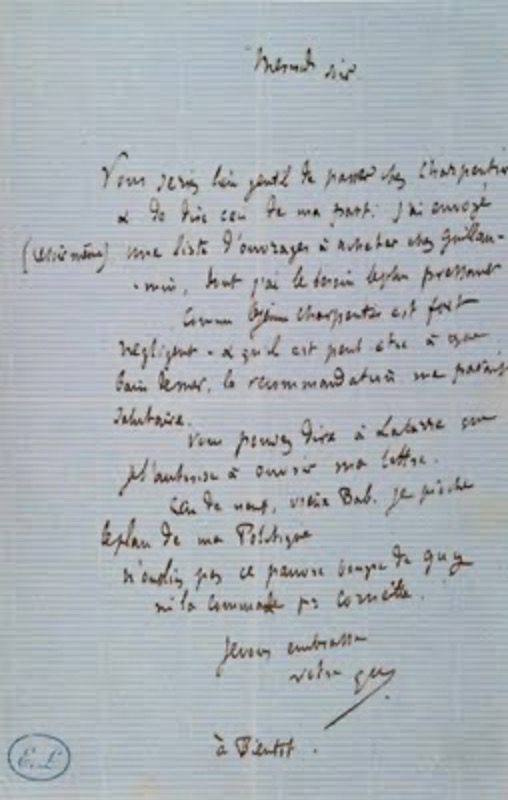 Mercredi soir.
Vous seriez bien gentil de passer chez Charpentier
& de dire ceci de ma part: j'ai envoyé
(ce soir même) une liste d'ouvrages à acheter chez Guillau-
-min, dont j'ai le besoin le plus pressant
Comme Charpentier est fort
négligent - & qu'il est peut être à
bain de mer, la recommandation me paraît
salutaire.
Vous pouvez dire à que
je l'autorise à ouvrir ma lettre.
de neuf, vieux Bab. je pioche
le plan de ma Politique
n'oubliez pas ce pauvre bougre de Guy
ni la commande pr Corneille.
Je vous embrasse
votre
à Bientôt.
E. L.